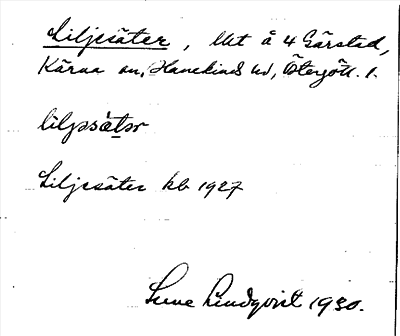 Liljesäter, lht å 4 Gärstad,
Kärna sn, Hanekinds hd, Östergötl. l.
liljəsä̀tər
Liljesäter kb 1927
Sune Lindqvist 1930.